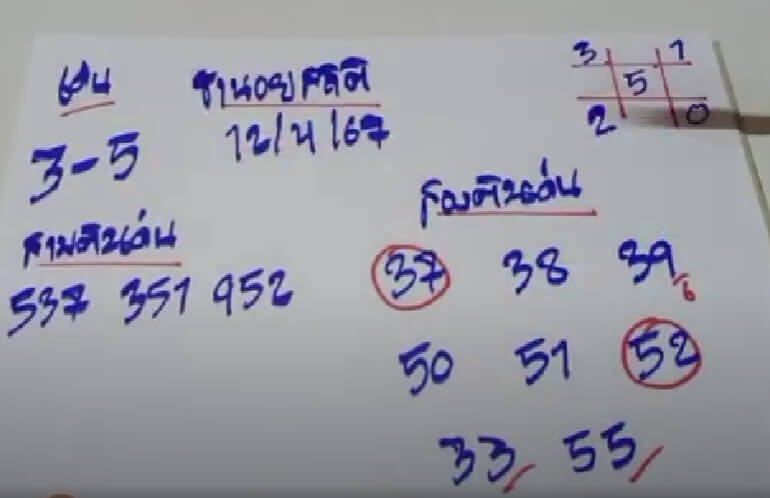 เด่น
ฮานอยสถิติ
3 1
5
2 0
3-5
12/4/67
สามตัวเด่น
สองตัวเด่น
537 351 952
37 38 39
6
50 51 52
33 55